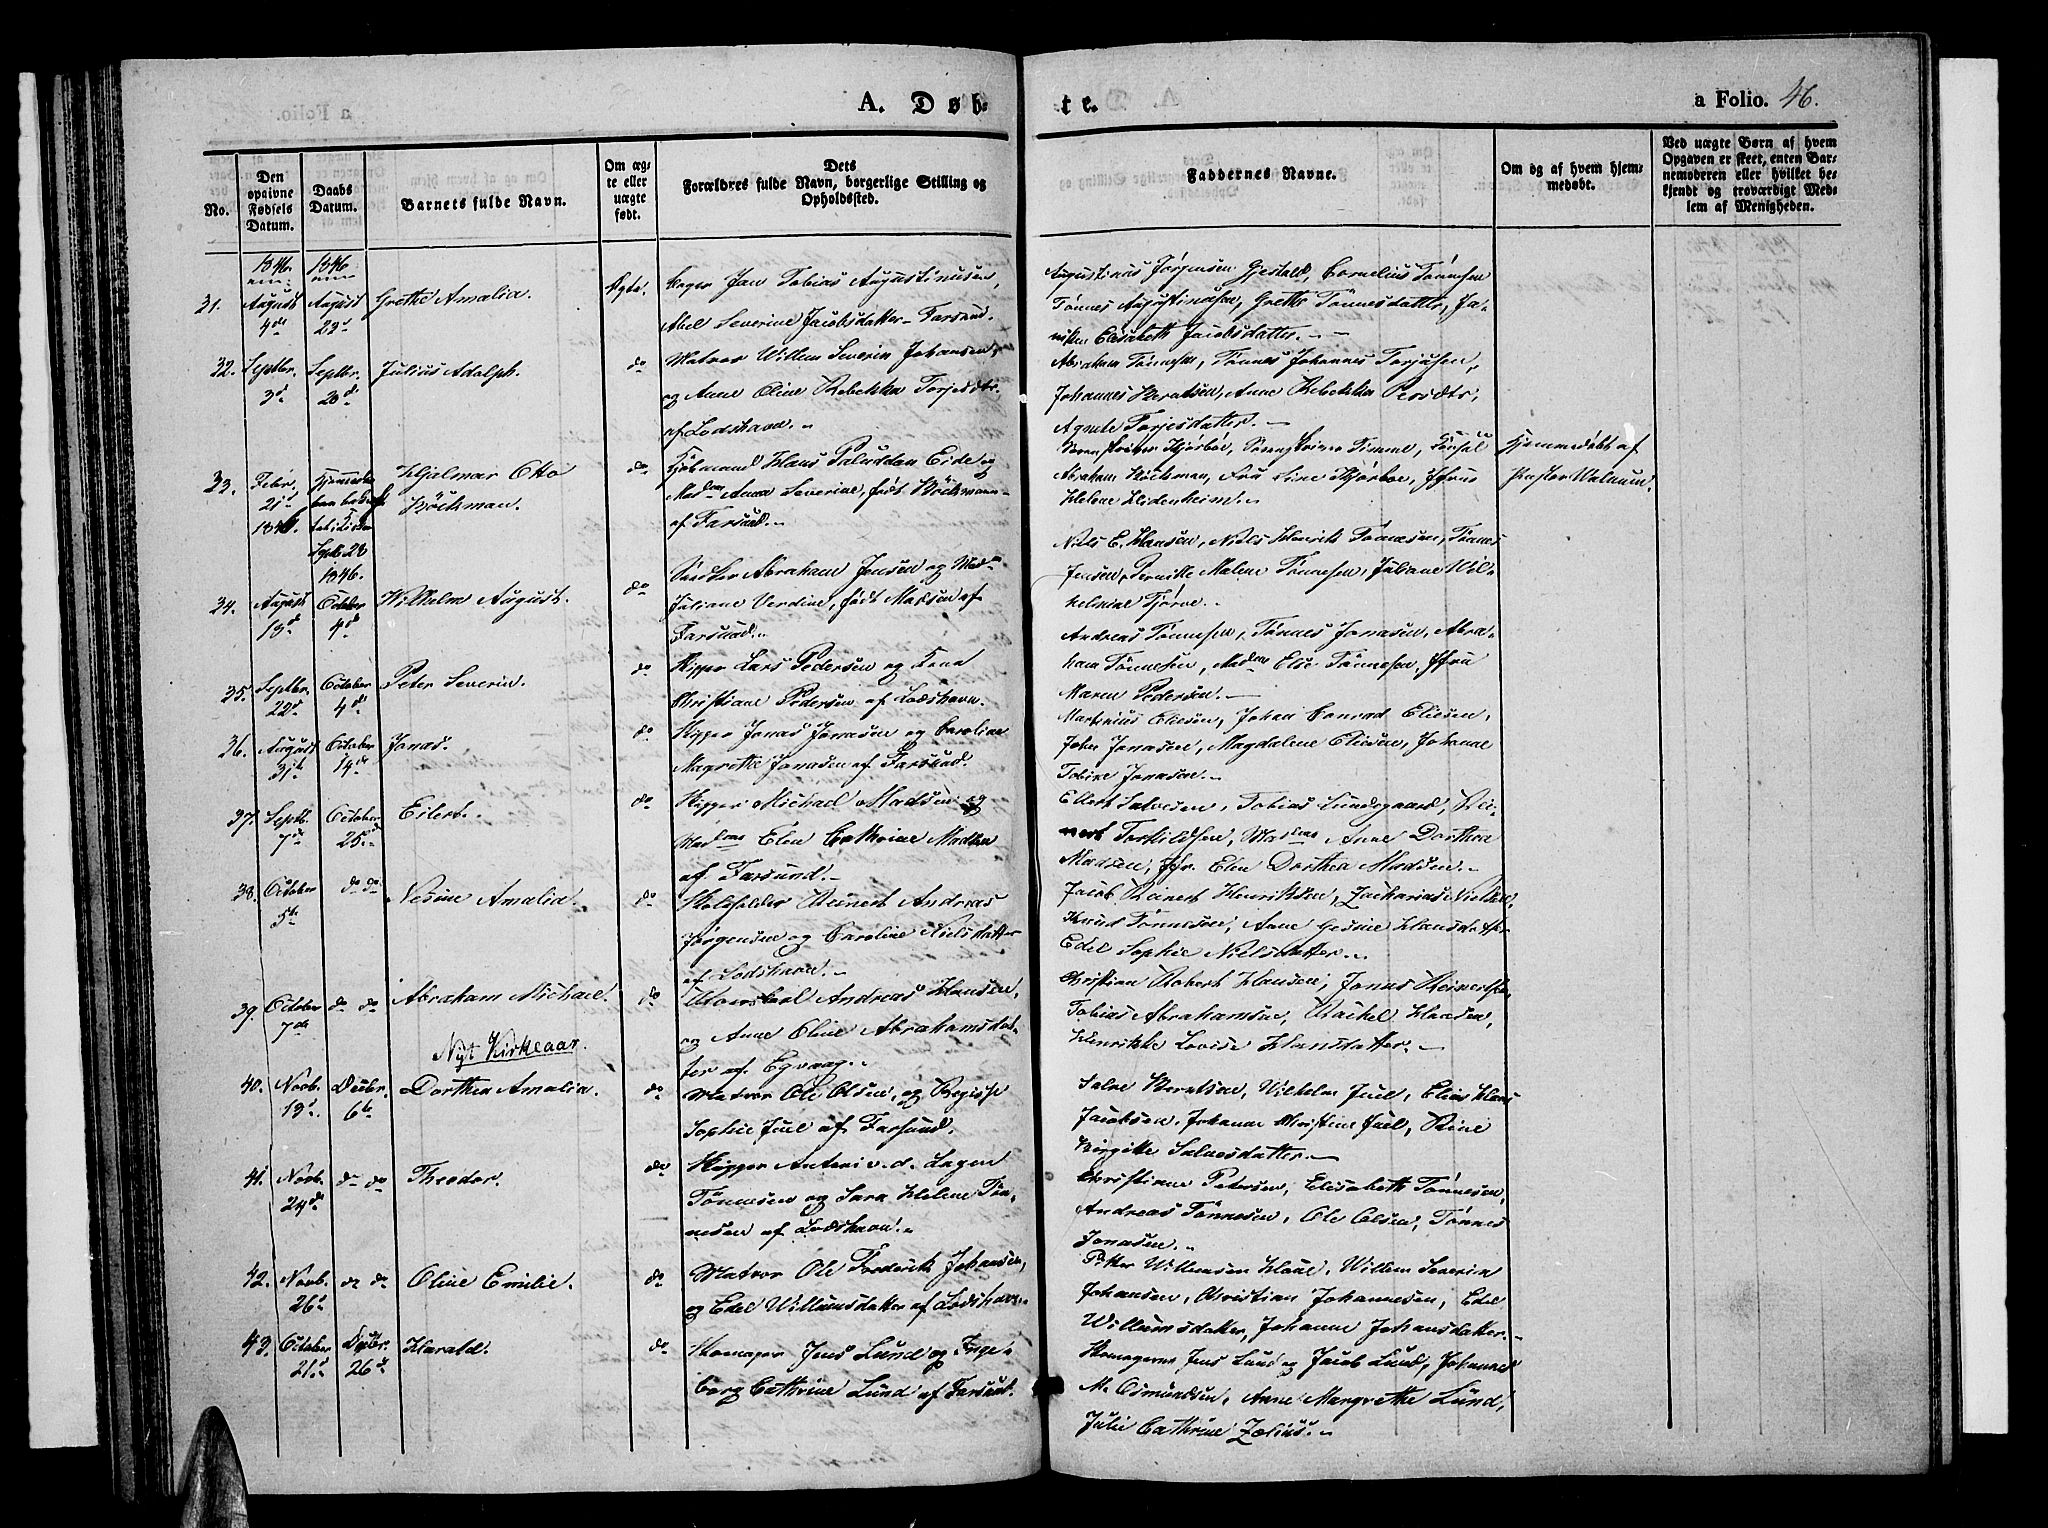 A. Døb-
te.
a Folio. 46.
No.
Den opgivne Fødsels Datum.
Daabs Datum.
Barnets fulde Navn.
Om ægte eller uægte født.
Dets Forældres fulde Navn, borgerlige Stilling og Opholdssted.
Faddernes Navne.
Om og af hvem hjemmedøbt.
Ved uægte Børn af hvem Opgaven er skeet, enten Barnemoderen eller hvilket bekjendt og troværdigt Medlem af Menigheden.
1846. 1846
31. August 4de August 23d Grethe Amalia. Ægte. Jan Tobias Augustinusen,
Abel Severine Jacobsdatter Farsund.
Augustinus Jørgensen Gjestad, Cornelius Tønnesen
Tønnes Augustinusen, Grethe Tønnesdatter, Ja-
Elisabeth Jacobsdatter.
32. Septbr. 3d Septbr. 20d Julius Adolph. do Matros Willum Severin Johansen
og Anne Oline Rebekka Torjesdtr.
af Lodshavn.
Abraham Tønnesen, Tønnes Johannes Torjusen,
Johannes Berntsen, Anne Rebekka
Agnete Torjesdatter.
33. Febr. 21d 1846. Septb 28 1846. Hjalmar Otto
Böckman.
do Kjøbmand Hans Paluddan Eide og
Madm Anna Severine, født Böckmann
af Farsund.
Abraham Böckman, Fru Line Kjørboe, Jfrue
Helene Hidenheim.
Hjemmedøbt af
Pastor Walnum.
34. August 13d October 4d Wilhelm August. do Abraham Jensen og Madm
Juliane Verdine, født Madsen af
Farsund.
Niels E. Hansen, Niels Henrik Tønnesen, Tønnes
Jensen, Pernille Malene Tønnesen, Juliane Wil-
helmine
35. Septbr. 22d October 4d Peter Severin. do Skipper Lars Pedersen og Kone
Christiane Pedersen af Lodshavn.
Andreas Tønnesen, Tønnes Jonasen, Abra-
ham Tønnesen, Madm Elie Tønnesen, Jfru
Maren Pedersen.
36. August 31te October 14de Jonas. do Skipper Jonas Jonasen og Caroline
Magrethe Jonasen af Farsund.
Martinius Eliesen, Johan Conrad Eliesen,
John Jonasen, Magdalene Eliesen, Johanne
Tobine Jonasen.
37. Septb. 7de October 25. Eilert. do Skipper Michael Madsen og
Madms Elen Cathrine Madsen
af Farsund.
Ellert Salvesen, Tobias Lundegaard, Rei-
nert Torkildsen, Madms Anne Dorthea
Madsen, Jfr. Elen Dorthea Madsen.
38. October 5te do do Nesine Amalia. do Skoleholder Reinert Andreas
Jørgensen og Caroline Nielsdatter
af Lodshavn.
Jacob Reinert Henriksen, Zacharias Nielsen,
Knud Tønnesen, Anne Gesine Hansdatter
Edel Sophie Nielsdatter.
39. October 7de do do Abraham Michael. do Andreas Hansen,
og Anne Oline Abrahamsdat-
ter af Egvaag.
Christian Robert Hansen, Jonas Reinertsen,
Tobias Abrahamsen, Rachel Hansen,
Henrikke Lovise Hansdatter.
Nyt Kirkeaar.
40. Novb. 13d. Decbr. 6te Dorthea Amalia. do Matros Ole Olsen, og Regisse
Sophie Juel af Farsund.
Salve Berntsen, Wilhelm Juel, Elias Hans
Jacobsen, Johanne Christine Juel, Rine
Birgitte Salvesdatter.
41. Novb. 24d do do Theodor. do Skipper Anton v. d. Lagen
Tønnesen og Sara Helene Tøn-
nesen af Lodshavn.
Christiane Petersen, Elisabeth Tønnesen,
Andreas Tønnesen, Ole Olsen, Tønnes
Jonasen.
42. Novb. 26d do do Oline Emilie. do Matros Ole Frederik Johansen,
og Edel Willumsdatter af Lodshavn.
Peter Willumsen Haue, Willum Severin
Johansen, Christian Johannesen, Edel
Willumsdatter, Johanne Johansdatter.
43. October 21d. Decbr. 26d Harald. do Skomager Jens Lund og Inge-
borg Cathrine Lund af Farsund.
Skomagerne Jens Lund og Jacob Lund, Johannes
M. Osmundsen, Anne Margrethe Lund,
Julie Cathrine Zelius.